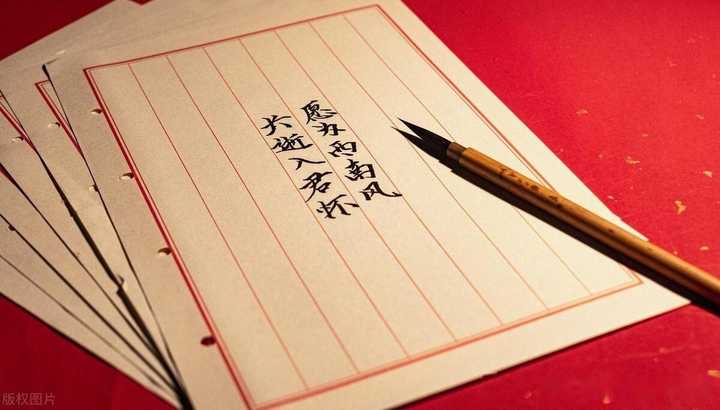 愿为西南风
长逝入君怀
版权图片